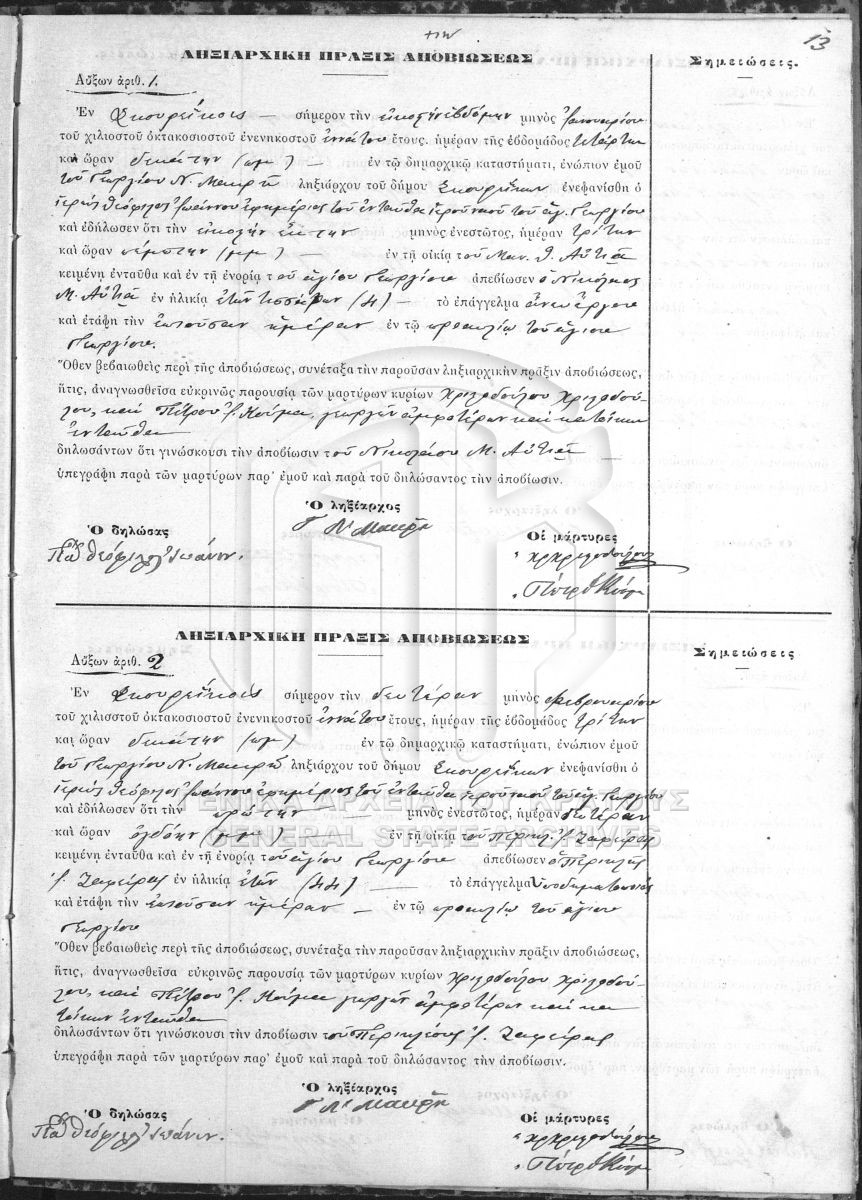 13
ΛΗΞΙΑΡΧΙΚΗ ΠΡΑΞΙΣ ΑΠΟΒΙΩΣΕΩΣ
Σημειώσεις.
Αὔξων ἀριθ. 1.
Ἐν Σκουρέϊκοις σήμερον τὴν εἰκοστὴν ἑβδόμην μηνὸς Ἰανουαρίου
τοῦ χιλιοστοῦ ὀκτακοσιοστοῦ ἐνενηκοστοῦ ἐννάτου ἔτους, ἡμέραν τῆς ἑβδομάδος τετάρτην
καὶ ὥραν δεκάτην (πμ) ἐν τῷ δημαρχικῷ καταστήματι, ἐνώπιον ἐμοῦ
τοῦ Γεωργίου Ν. Μακρῆ ληξιάρχου τοῦ δήμου Σκουρέϊκων ἐνεφανίσθη ὁ
ἱερεὺς Θεόφιλος Ἰωάννου ἐφημέριος τοῦ ἐνταῦθα ἱεροῦ ναοῦ τοῦ ἁγ. Γεωργίου
καὶ ἐδήλωσεν ὅτι τὴν εἰκοστὴν ἕκτην μηνὸς ἐνεστῶτος, ἡμέραν τρίτην
καὶ ὥραν πέμπτην (μμ) ἐν τῇ οἰκίᾳ τοῦ Μαν. Αὐτιᾶ
κειμένῃ ἐνταῦθα καὶ ἐν τῇ ἐνορίᾳ τοῦ ἁγίου Γεωργίου ἀπεβίωσεν ὁ Νικόλαος
Μ. Αὐτιᾶ ἐν ἡλικίᾳ ἐτῶν τεσσάρων (4) τὸ ἐπάγγελμα ἄνευ ἔργου
καὶ ἐτάφη τὴν ἐπιοῦσαν ἡμέραν ἐν τῷ προαυλίῳ τοῦ ἁγίου
Γεωργίου.
Ὅθεν βεβαιωθεὶς περὶ τῆς ἀποβιώσεως, συνέταξα τὴν παροῦσαν ληξιαρχικὴν πρᾶξιν ἀποβιώσεως,
ἥτις, ἀναγνωσθεῖσα εὐκρινῶς παρουσίᾳ τῶν μαρτύρων κυρίων Χριστοδούλου Χριστοδού-
λου, καὶ Πέτρου Κούμα, γεωργῶν ἀμφοτέρων καὶ κατοίκων
ἐνταῦθα
δηλωσάντων ὅτι γινώσκουσι τὴν ἀποβίωσιν τοῦ Νικολάου Μ. Αὐτιᾶ
ὑπεγράφη παρὰ τῶν μαρτύρων παρ' ἐμοῦ καὶ παρὰ τοῦ δηλώσαντος τὴν ἀποβίωσιν.
Ὁ ληξίαρχος
Γ Ν Μακρῆ
Ὁ δηλώσας
Οἱ μάρτυρες
Παπᾶ Θεόφιλος Ἰωάννου.
ΛΗΞΙΑΡΧΙΚΗ ΠΡΑΞΙΣ ΑΠΟΒΙΩΣΕΩΣ
Σημειώσεις
Αὔξων ἀριθ. 2
Ἐν Σκουρέϊκοις σήμερον τὴν δευτέραν μηνὸς Φεβρουαρίου
τοῦ χιλιοστοῦ ὀκτακοσιοστοῦ ἐνενηκοστοῦ ἐννάτου ἔτους, ἡμέραν τῆς ἑβδομάδος τρίτην
καὶ ὥραν δεκάτην (πμ) ἐν τῷ δημαρχικῷ καταστήματι, ἐνώπιον ἐμοῦ
τοῦ Γεωργίου Ν. Μακρῆ ληξιάρχου τοῦ δήμου Σκουρέϊκων ἐνεφανίσθη ὁ
ἱερεὺς Θεόφιλος Ἰωάννου ἐφημέριος τοῦ ἐνταῦθα ἱεροῦ ναοῦ τοῦ ἁγ. Γεωργίου
ΓΕΝΙΚΑ ΑΡΧΕΙΑ ΤΟΥ ΚΡΑΤΟΥΣ
καὶ ἐδήλωσεν ὅτι τὴν πρώτην μηνὸς ἐνεστῶτος, ἡμέραν δευτέραν
GENERAL STATE ARCHIVES
καὶ ὥραν ὀγδόην (μμ) ἐν τῇ οἰκίᾳ τοῦ Περικλ. Ζαφείρας
κειμένῃ ἐνταῦθα καὶ ἐν τῇ ἐνορίᾳ τοῦ ἁγίου Γεωργίου ἀπεβίωσεν ὁ Περικλῆς
Ζαφείρας ἐν ἡλικίᾳ ἐτῶν (44) τὸ ἐπάγγελμα ὑποδηματοποιός
καὶ ἐτάφη τὴν ἐπιοῦσαν ἡμέραν ἐν τῷ προαυλίῳ τοῦ ἁγίου
Γεωργίου
Ὅθεν βεβαιωθεὶς περὶ τῆς ἀποβιώσεως, συνέταξα τὴν παροῦσαν ληξιαρχικὴν πρᾶξιν ἀποβιώσεως,
ἥτις, ἀναγνωσθεῖσα εὐκρινῶς παρουσίᾳ τῶν μαρτύρων κυρίων Χριστοδούλου Χριστοδού-
λου, καὶ Πέτρου Κούμα γεωργῶν ἀμφοτέρων καὶ κα
τοίκων ἐνταῦθα
δηλωσάντων ὅτι γινώσκουσι τὴν ἀποβίωσιν τοῦ Περικλέους Ζαφείρας
ὑπεγράφη παρὰ τῶν μαρτύρων παρ' ἐμοῦ καὶ παρὰ τοῦ δηλώσαντος τὴν ἀποβίωσιν.
Ὁ ληξίαρχος
Γ Ν Μακρῆ
Ὁ δηλώσας
Οἱ μάρτυρες
Παπᾶ Θεόφιλος Ἰωάννου.